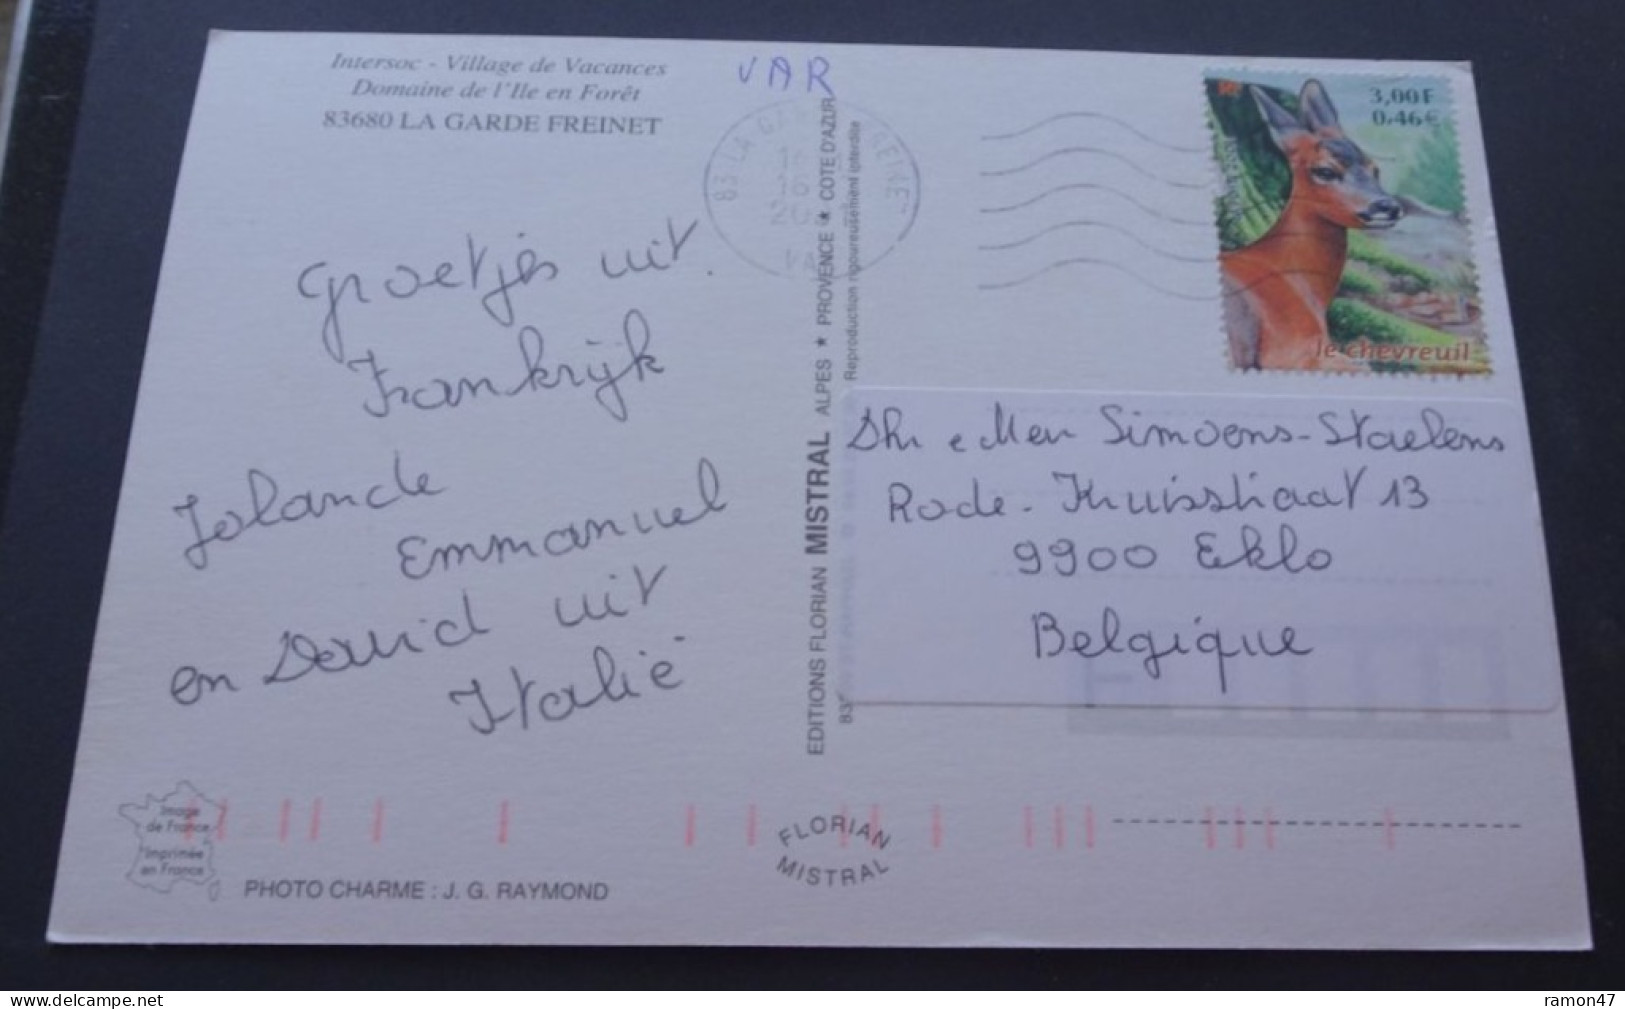 Intersoc - Village de Vacances
Domaine de l'Ile en Forêt
83680 LA GARDE FREINET
VAR
3,00 F
0,46€
le chevreuil
Groetjes uit
Frankrijk
Jolande
Emmanuel
en David uit
Italië
EDITIONS FLORIAN MISTRAL ALPES ★ PROVENCE ★ COTE D'AZUR
Reproduction rigoureusement interdite
Dhr e Mevr Simoens-Staelens
Rode-Kruisstraat 13
9900 Eklo
Belgique
Image
de France
Imprimée
en France
PHOTO CHARME : J. G. RAYMOND
FLORIAN
MISTRAL
www.delcampe.net
ramon47